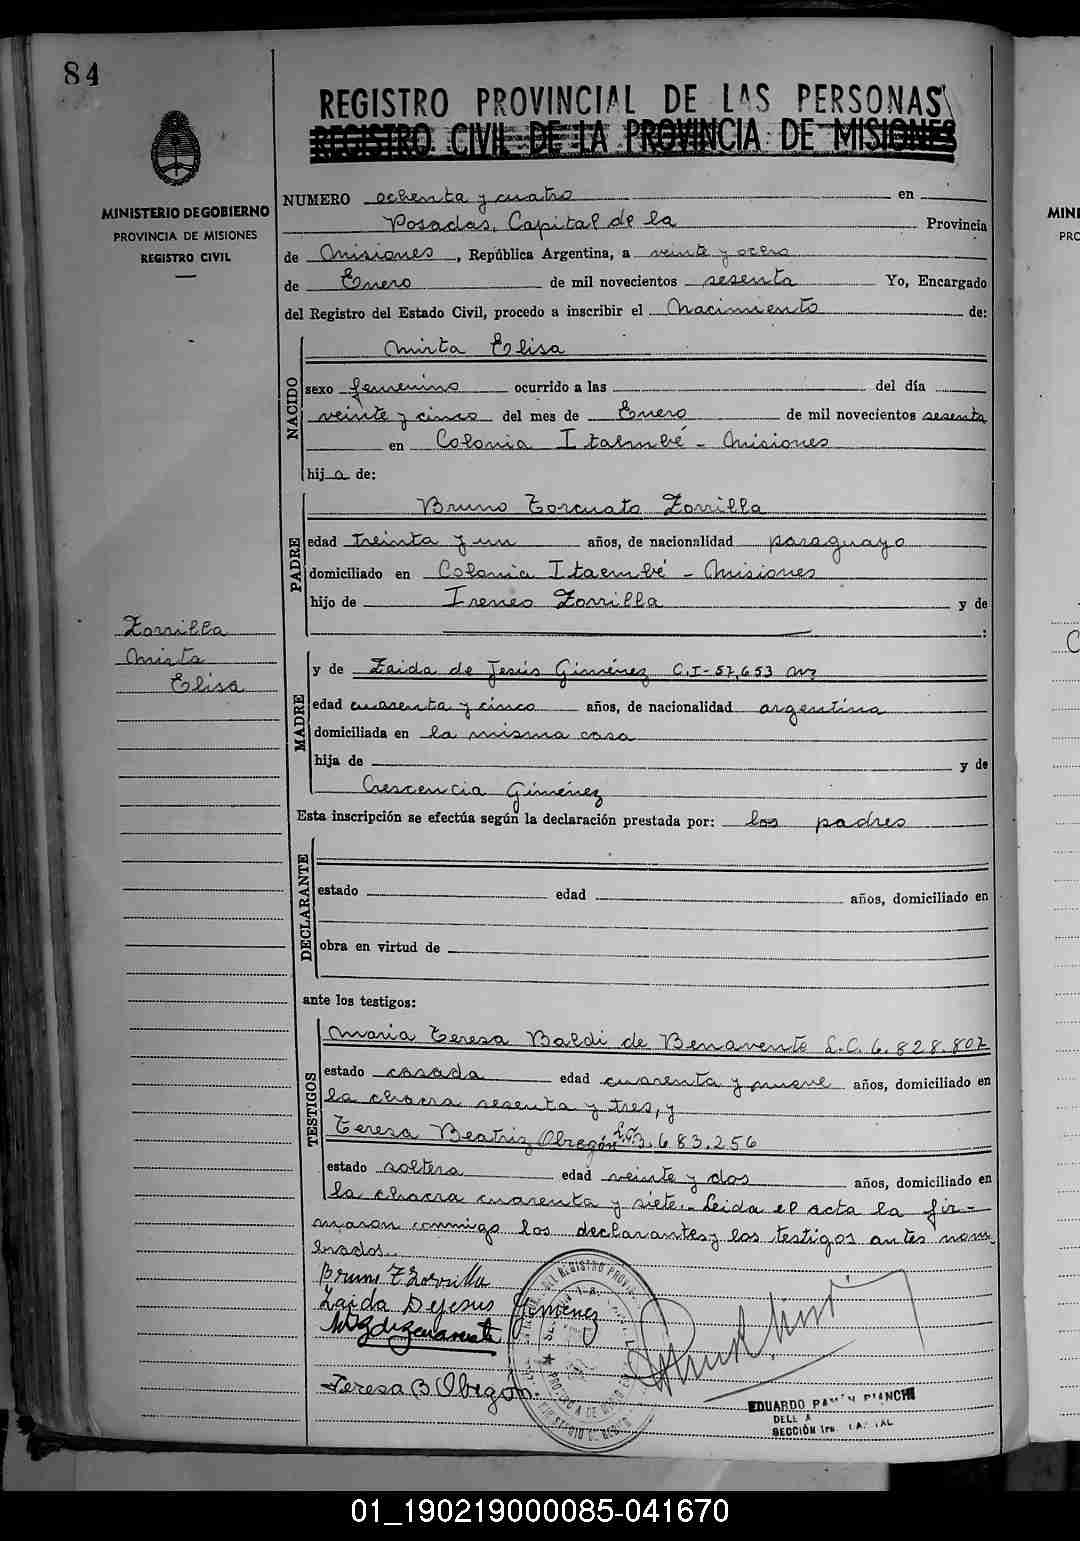 84
REGISTRO PROVINCIAL DE LAS PERSONAS
REGISTRO CIVIL DE LA PROVINCIA DE MISIONES
MINISTERIO DE GOBIERNO
PROVINCIA DE MISIONES
REGISTRO CIVIL
NUMERO ochenta y cuatro en
Posadas, Capital de la Provincia
de Misiones, República Argentina, a veinte y ocho
de Enero de mil novecientos sesenta Yo, Encargado
del Registro del Estado Civil, procedo a inscribir el Nacimiento de:
NACIDO
Mirta Elisa
sexo femenino ocurrido a las del día
veinte y cinco del mes de Enero de mil novecientos sesenta
en Colonia Itaembé - Misiones
hija de:
PADRE
Bruno Torcuato Zorrilla
edad treinta y un años, de nacionalidad paraguayo
domiciliado en Colonia Itaembé - Misiones
hijo de Ireneo Zorrilla y de
:
Zorrilla
Mirta
Elisa
MADRE
y de Zaida de Jesús Giménez C.I-57.653
edad cuarenta y cinco años, de nacionalidad argentina
domiciliada en la misma casa
hija de y de
Crescencia Giménez
Esta inscripción se efectúa según la declaración prestada por: los padres
DECLARANTE
estado edad años, domiciliado en
obra en virtud de
ante los testigos:
TESTIGOS
Maria Teresa Baldi de Benavento L.C. 6.828.807
estado casada edad cuarenta y nueve años, domiciliado en
la chacra sesenta y tres, y
Teresa Beatriz Obregón L.C. 3.683.256
estado soltera edad veinte y dos años, domiciliado en
la chacra cuarenta y siete.- Leida el acta la fir-
maron conmigo los declarantes y los testigos antes nom-
brados.
Bruno T Zorrilla
Zaida Dejesus Gimenez
Teresa B Obregón.
EDUARDO RAMON BIANCHI
SECCIÓN 1ra.
01_190219000085-041670